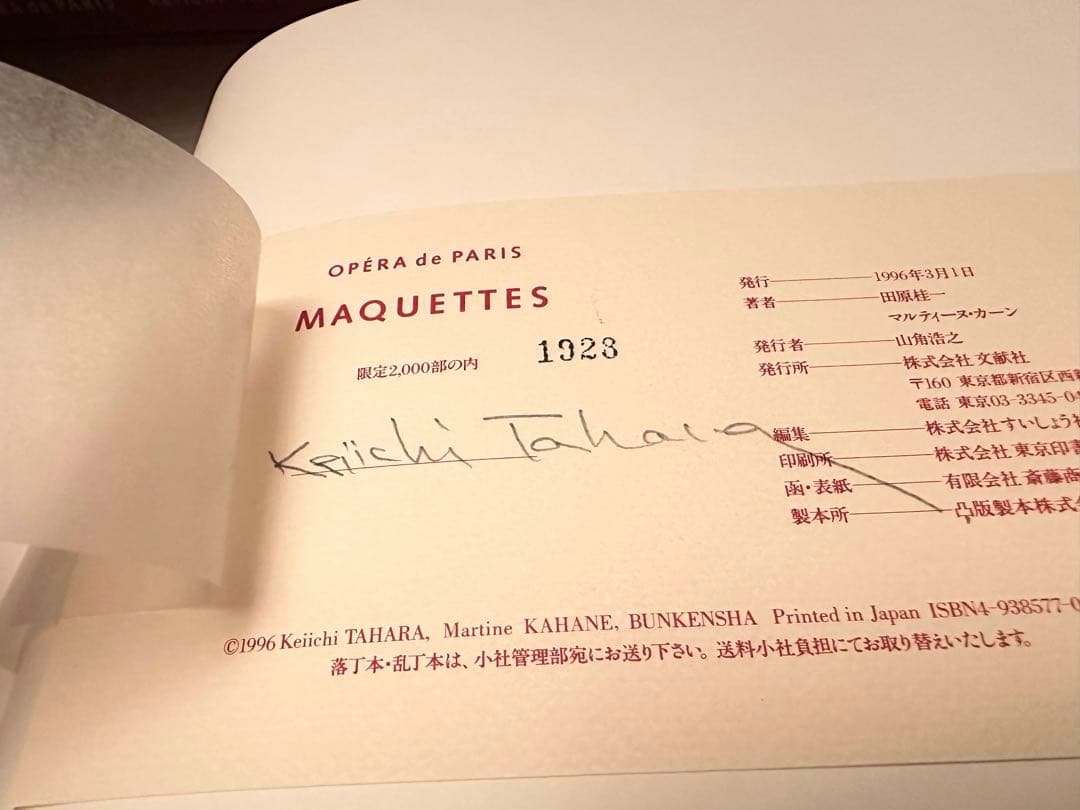 OPÉRA de PARIS
MAQUETTES
限定2,000部の内 1923
Keiichi Tahara
発行 1996年3月1日
著者 田原桂一
マルティーヌ・カーン
発行者 山角浩之
発行所 株式会社 文献社
〒160 東京都新宿区西新
電話 東京03-3345-04
編集 株式会社すいしょう社
印刷所 株式会社 東京印書
函・表紙 有限会社 斎藤商
製本所 凸版製本株式会
©1996 Keiichi TAHARA, Martine KAHANE, BUNKENSHA Printed in Japan ISBN4-938577-0
落丁本・乱丁本は、小社管理部宛にお送り下さい。送料小社負担にてお取り替えいたします。